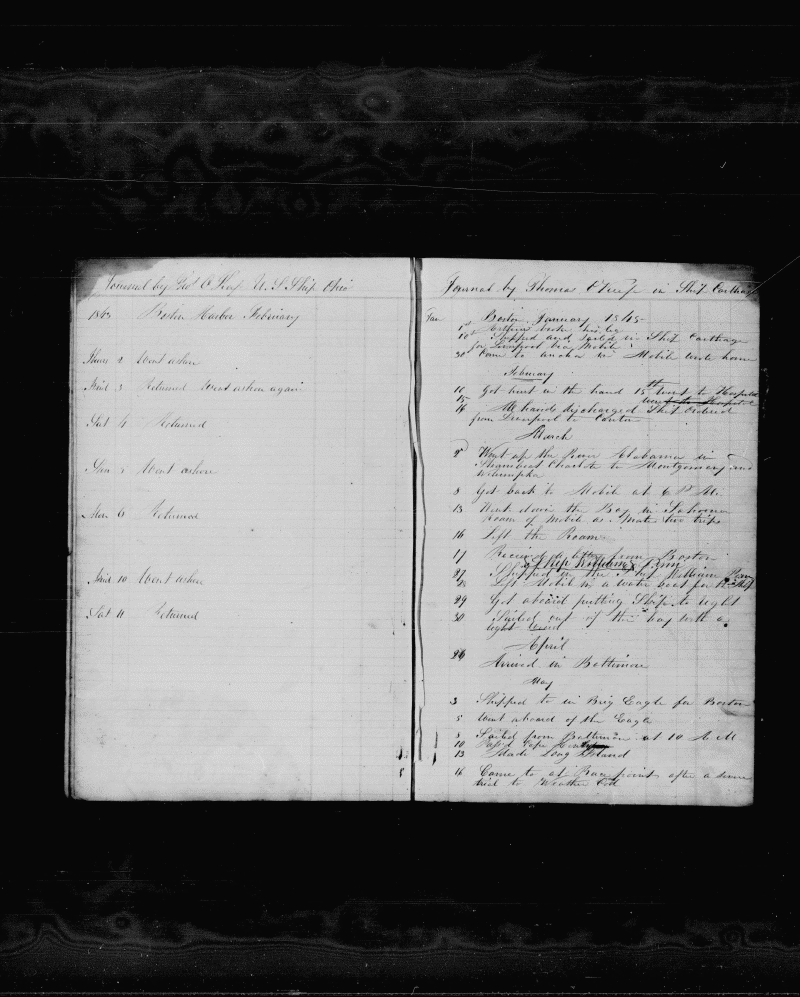 Journal by Geo C U. S. Ship Ohio
184 Boston Harbor February
Thurs 2 Went ashore
3 Returned Went ashore again
Sat 4 Returned
Sun 5 Went ashore
Mon 6 Returned
10 Went ashore
Sat 11 Returned
Journal by Thomas in Ship Carthage
Jan Boston January 1845
1st broke his leg
10th Shipped and sailed in Ship Carthage
for Liverpool via Mobile
30 Came to anchor in Mobile wrote home
February
10 Got hurt in the hand 15th went to Hospital
15
16 All hands discharged Ship ordered
from Liverpool to Canton
March
Went up the River Alabama in
Steamboat Charlotte to Montgomery and
Wetumpka
8 Got back to Mobile at 6 P. M.
13 Went down the Bay in
of Mobile as Mate two trips
16 Left the
17 Received a letter from Boston
of Ship William Penn
27 Shipped in the Ship William Penn
28 Left Mobile in a water boat for the Ship
29 Got aboard putting Ship to right
30 Sailed out of the bay with a
light wind
April
26 Arrived in Baltimore
May
3 Shipped to in Brig Eagle for Boston
5 Went aboard of the Eagle
8 Sailed from Baltimore at 10 A M
10 Cape
13 Made Long Island
16 Came to at Race point after a severe
trial to Weather Cod